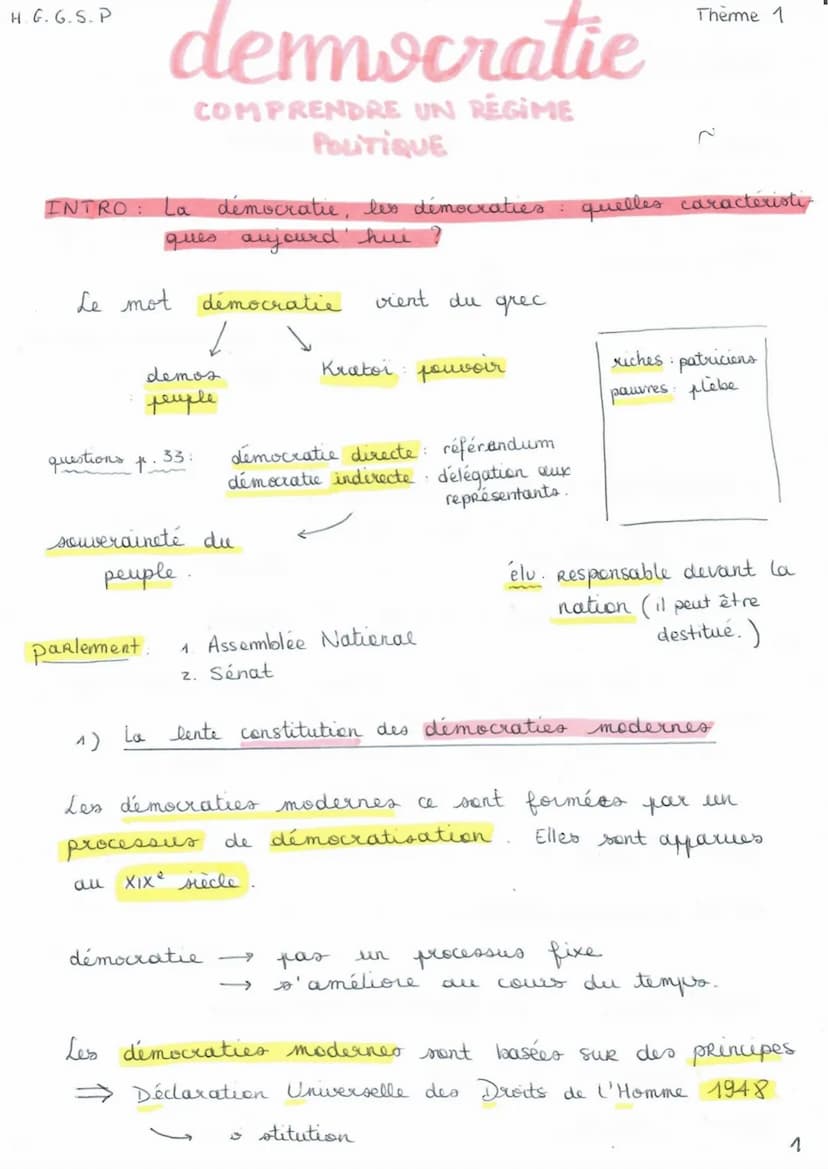 H.G.G.S.P
Thème 1
democratie
COMPRENDRE UN RÉGIME
POLITIQUE
INTRO : La démocratie, les démocraties : quelles caractéristi-
ques aujourd'hui ?
Le mot démocratie vient du grec
demos
: peuple
Kratoi : pouvoir
riches : patriciens
pauvres : plèbe
questions p.33 :
démocratie directe : référendum
démocratie indirecte : délégation aux
représentants.
souveraineté du
peuple.
élu : Responsable devant la
nation (il peut être
destitué.)
parlement :
1. Assemblée National
2. Sénat
1) La lente constitution des démocraties modernes
Les démocraties modernes ce sont formées par un
processus de démocratisation. Elles sont apparues
au XIXe siècle.
démocratie → pas un processus fixe
→ s'améliore au cours du temps.
Les démocraties modernes sont basées sur des principes
⇒ Déclaration Universelle des Droits de l'Homme 1948
↳ stitution
1